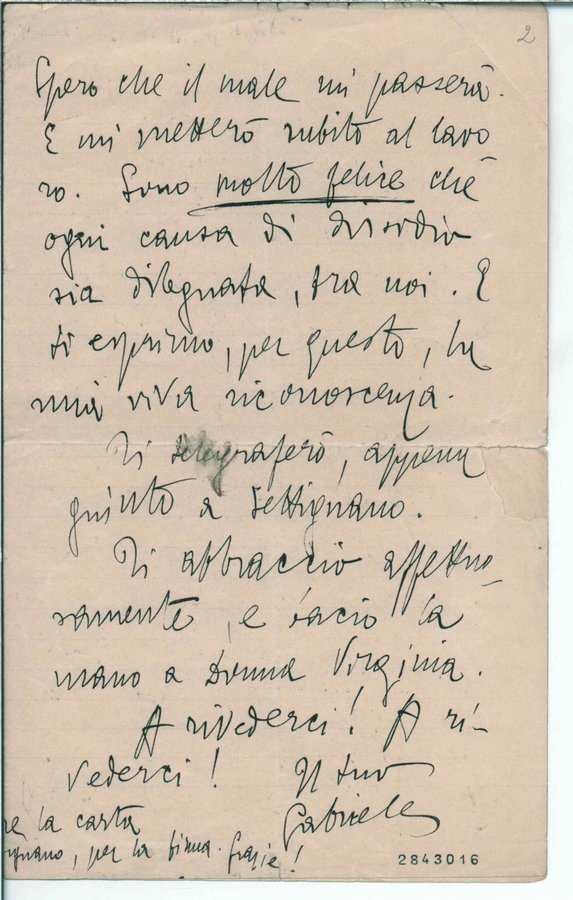 2
Spero che il male mi passerà.
E mi metterò subito al lavo
ro. Sono molto felice che
ogni causa di discordia
sia dileguata, tra noi. E
ti esprimo, per questo, la
mia viva riconoscenza.
Ti telegraferò, appena
giunto a Settignano.
Ti abbraccio affettuo-
samente, e bacio la
mano a Donna Virginia.
A rivederci! A ri-
vederci! Il tuo
Gabriele
la carta
per la firma. Grazie!
2843016